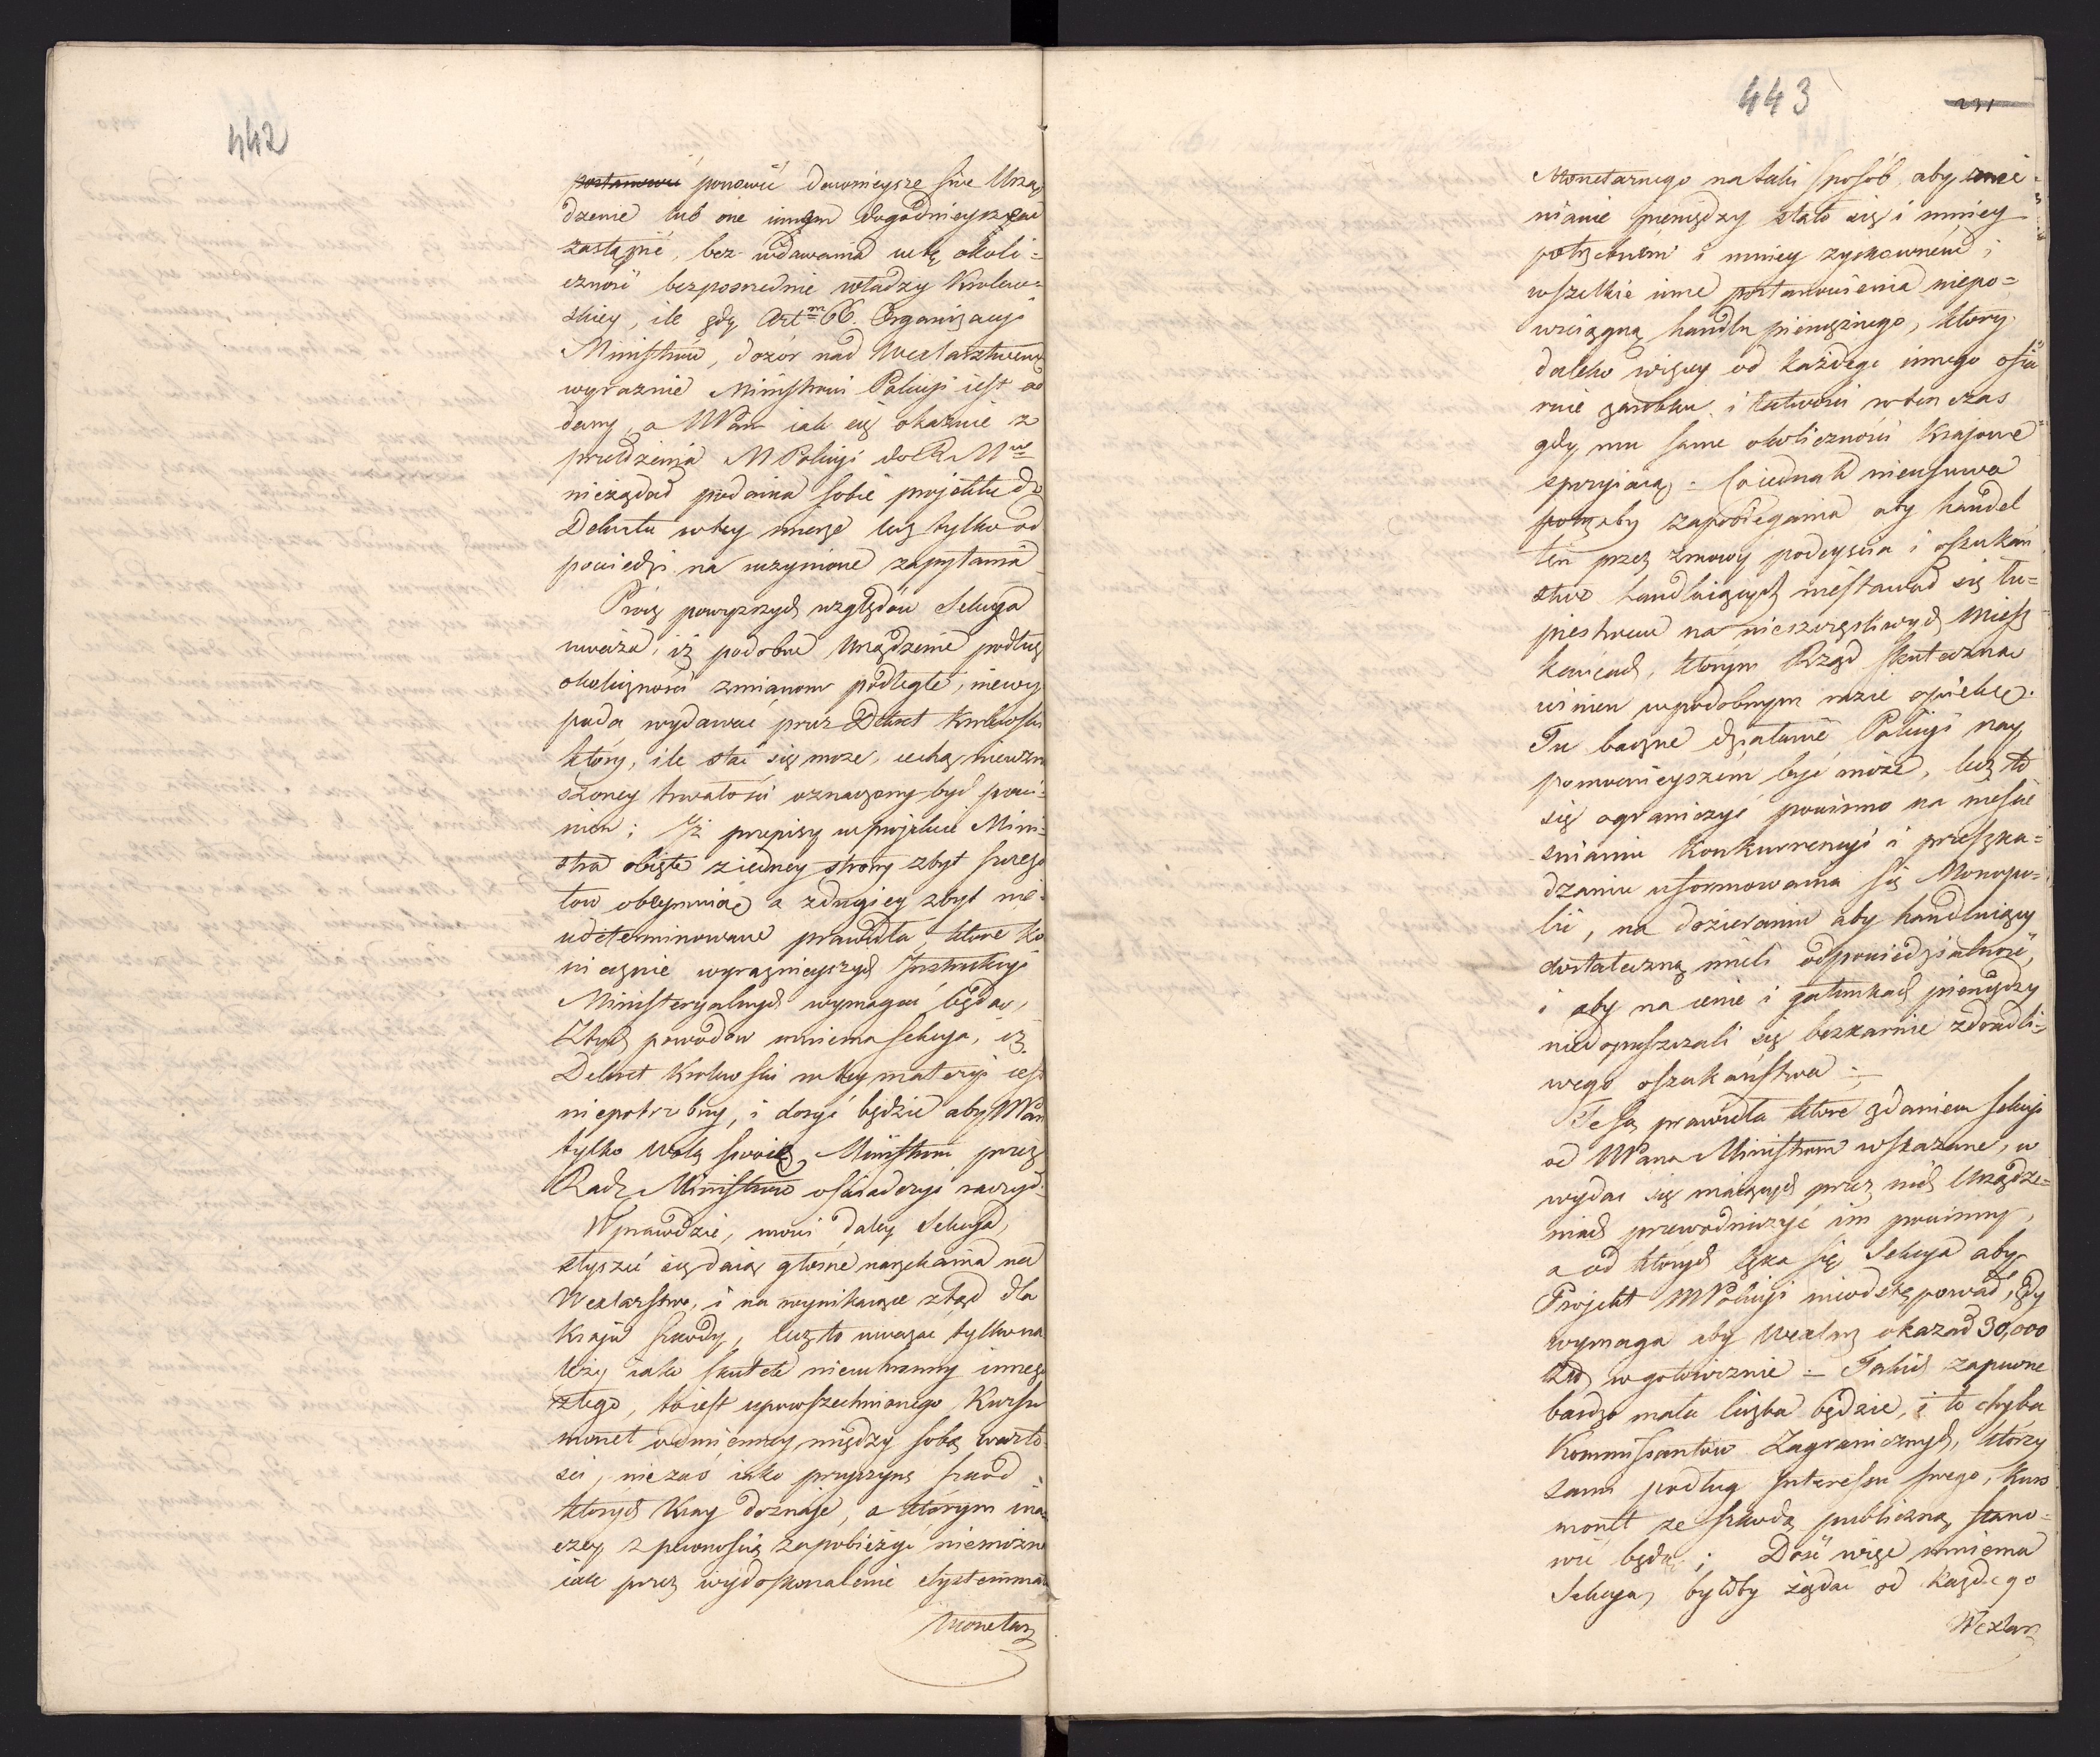 442
postanowić ponowić dawnieysze swe Urzą
dzenie lub one innym dogodnieyszem
zastąpić, bez wdawania w tę okoli=
czność bezpośrednie władzy Królew=
skiey, ile gdy Art.m 66. Organizacyi
Ministrów, dozór nad Wexlarstwem
wyraznie Ministrowi Policyi iest od
dany, a WPan iak się okazuie z
przedzenia M Policyi do R. M.
nieżądał podania sobie projektu do
Dekretu w tey mierze lecz tylko od
powiedzi na uczynione zapytania
Prócz powyzszych względów Sekcya
uważa, iż podobne Urządzenie podług
okoliczności zmianom podległe, niewy
pada wydawać przez Dekret Królewski
który, ile stać się może, cechą niewzru
szoney trwałości oznaczony być powi=
nien; Iż przepisy w projekcie Mini=
stra obięte z iedney strony zbyt szczegó
łów obeymuią a z drugiey zbyt nie=
udeterminowane prawidła, które ko
niecznie wyraznieyszych Instrukcyi
Ministeryalnych wymagać będą,
Z tych powodów mniema Sekcya, iż
Dekret Królewski w tey materyi iest
niepotrzebny, i dosyć będzie aby WPan
tylko wolą swoię Ministrowi przez
Radę Ministrów oświadczyć raczył.
Wprawdzie, mówi daley Sekcya,
słyszeć się daią głosne narzekania na
Wexlarstwo, i na wynikaiące ztąd dla
Kraju szkody, lecz to uważać tylko na
leży iako skutek nieuchronny innego
złego, to iest upowszechnionego Kursu
monet odmienney między sobą warto
ści, nie zaś iako przyczynę szkód
których Kray doznaje, a którym ina
czey z pewnością zapobieżyć niemożna
iak przez wydoskonalenie Systemmatu
Monetar
443
231
Monetarnego na taki sposób, aby zmie=
nianie pieniędzy stało się i mniey
potrzebnem i mniey zyskownem;
wszelkie inne postanowienia niepo=
wściągną handlu pieniężnego, który
daleko więcey od każdego innego ofia
ruie zarobku i łatwości w ten czas
gdy mu same okoliczności Krajowe
sprzyiaią = Co iednak nieusuwa
potrzeby zapobiegania aby handel
ten przez zmowy podeyscia i oszukań
stwo handluiących niestawał się łu=
piestwem na nieszczęśliwych Miesz
kańcach, którym Rząd skuteczną
winien w podobnym razie opiekę.
Tu baczne działanie Policyi nay
pomocnieyszém być może, lecz to
się ograniczyć powinno na nieście
śnianiu Konkurrencyi i przeszka=
dzaniu uformowania się Monopo=
lii, na dozieraniu aby handluiący
dostateczną mieli odpowiedzialność,
i aby na cenie i gatunkach pieniędzy
niedopuszczali się bezkarnie zdradli=
wego oszukaństwa =
Te są prawidła które zdaniem Sekcyi
od WPana Ministrowi wskazane, w
wydać się maiących przez nich Urządze=
niach przewodniczyć im powinny,
a od których lęka się Sekcya aby
Projekt M Policyi nieodstępował, gdy
wymaga aby Wexlarz okazał 30,000
Złp w gotowiznie = Takich zapewne
bardzo mała liczba będzie, i to chyba
Kommissantów Zagranicznych, którzy
sami podług Interessu swego, Kurs
monet ze szkodą publiczną stano=
wić będą; Dosć więc mniema
Sekcya, byłoby żądać od każdego
Wexlar